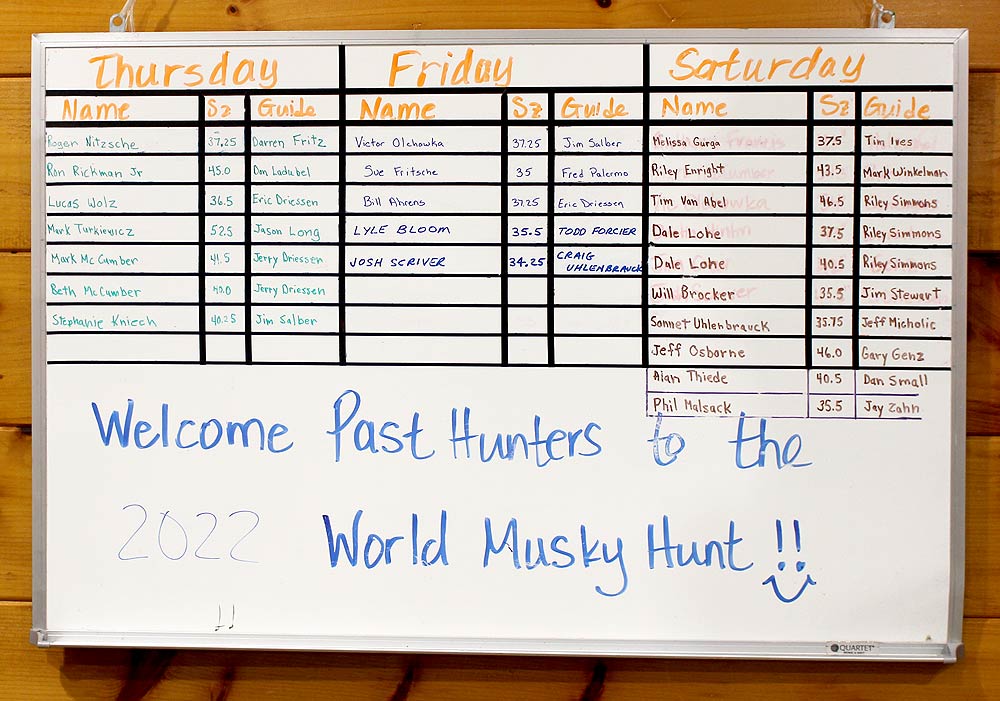 Thursday Friday Saturday
Name Sz Guide Name Sz Guide Name Sz Guide
Roger Nitzsche 37.25 Darren Fritz Victor Olchowka 37.25 Jim Salber Melissa Gurga 37.5 Tim Ives
Ron Rickman Jr 45.0 Don Ladubel Sue Fritsche 35 Fred Palermo Riley Enright 43.5 Mark Winkelman
Lucas Wolz 36.5 Eric Driessen Bill Ahrens 37.25 Eric Driessen Tim Van Abel 46.5 Riley Simmons
Mark Turkiewicz 52.5 Jason Long LYLE BLOOM 35.5 TODD FORCIER Dale Lohe 37.5 Riley Simmons
Mark McCumber 41.5 Jerry Driessen JOSH SCRIVER 34.25 CRAIG UHLENBRAUCK Dale Lohe 40.5 Riley Simmons
Beth McCumber 40.0 Jerry Driessen Will Brocker 35.5 Jim Stewart
Stephanie Kniech 40.25 Jim Salber Sonnet Uhlenbrauck 35.75 Jeff Micholic
Jeff Osborne 46.0 Gary Genz
Alan Thiede 40.5 Dan Small
Phil Malsack 35.5 Jay Zahn
Welcome Past Hunters to the
2022 World Musky Hunt !!
QUARTET